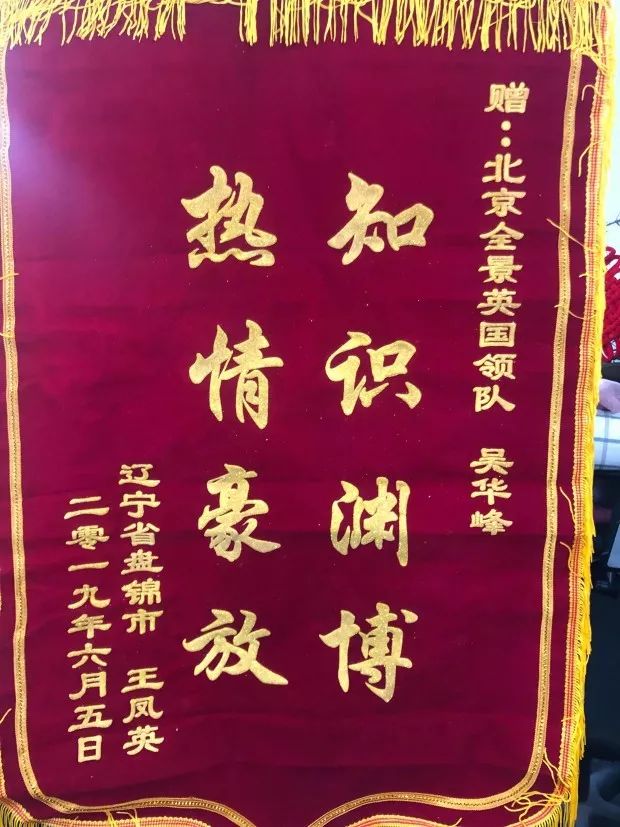 赠：北京全景英国领队 吴华峰
知识渊博
热情豪放
辽宁省盘锦市 王凤英
二零一九年六月五日